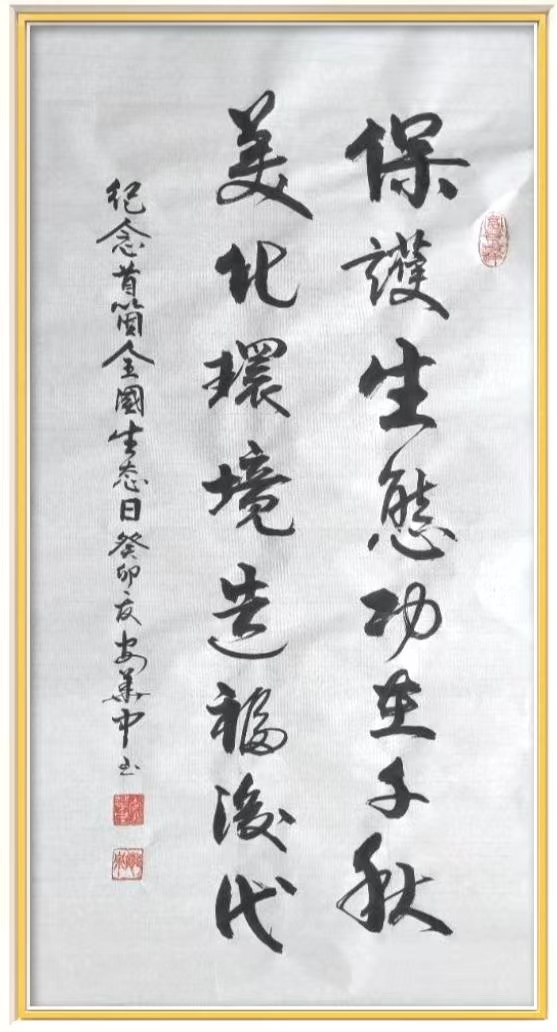 保護生態功在千秋
美化環境造福後代
紀念首箇全國生态日癸卯夏安華中书